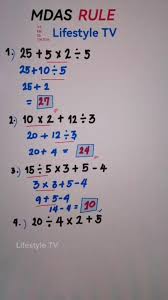 MDAS RULE
Lifestyle TV
1.) 25 + 5 × 2 ÷ 5
25 + 10 ÷ 5
25 + 2
= 27
2.) 10 × 2 + 12 ÷ 3
20 + 12 ÷ 3
20 + 4 = 24
3.) 15 ÷ 5 × 3 + 5 - 4
3 × 3 + 5 - 4
9 + 5 - 4
14 - 4 = 10
4.) 20 ÷ 4 × 2 + 5
Lifestyle TV